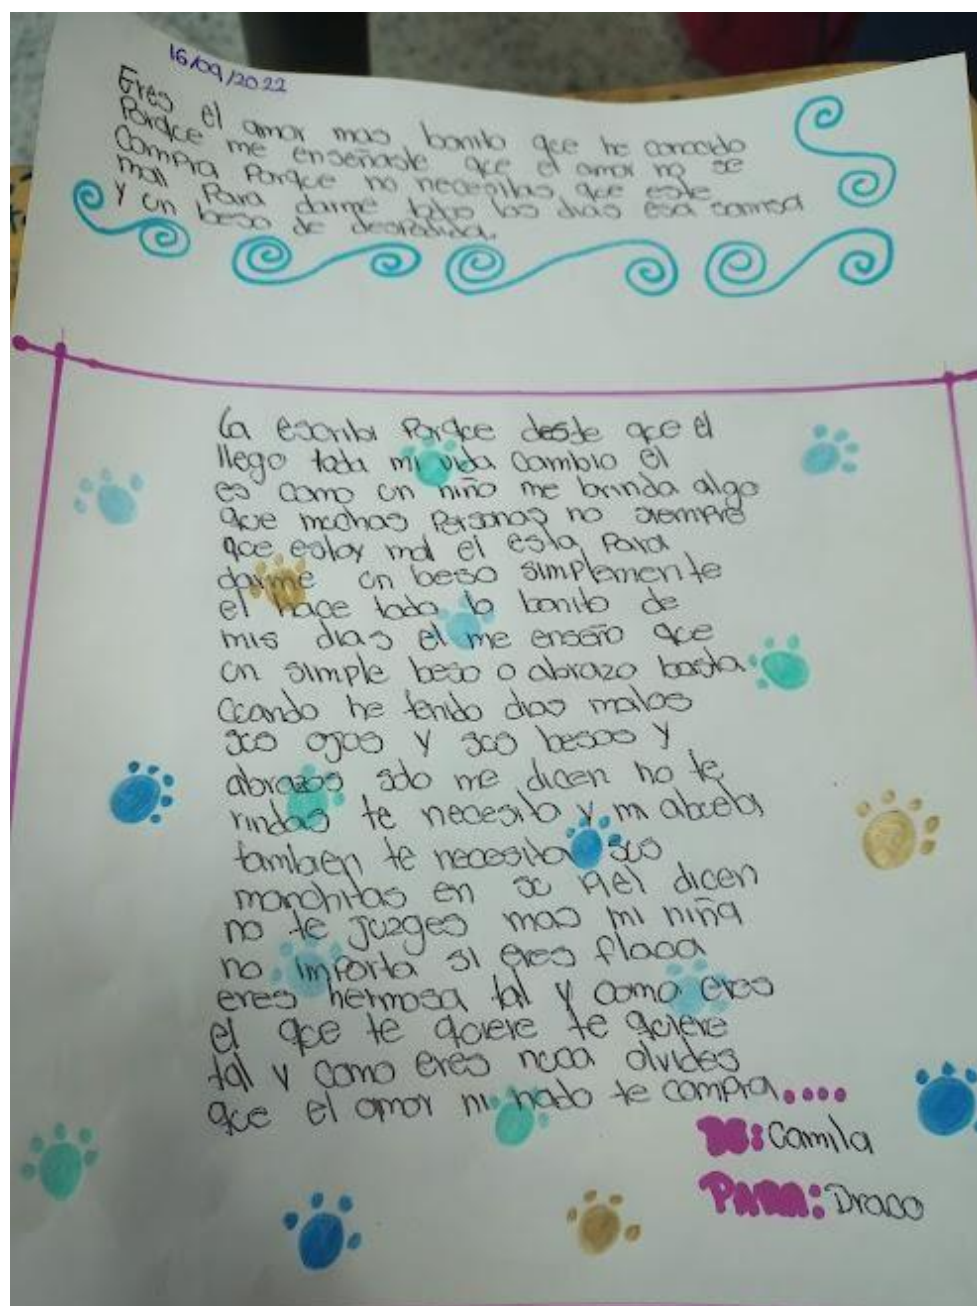 16/09/2022
Eres el amor mas bonito que he conocido
Porque me enseñaste que el amor no se
compra Porque no necesitas que este
mal Para darme todos los dias esa sonrisa
y un beso de despedida.
La escribi Porque desde que el
llego toda mi vida cambio el
es como un niño me brinda algo
que muchas Personas no siempre
que estoy mal el esta Para
darme un beso simplemente
el hace todo lo bonito de
mis dias el me enseño que
un simple beso o abrazo basta
cuando he tenido dias malos
sus ojos y sus besos y
abrazos solo me dicen no te
rindas te necesito y mi abuela
tambien te necesita sus
manchitas en su Piel dicen
no te juzges mas mi niña
no importa si eres flaca
eres hermosa tal y como eres
el que te quiere te quiere
tal y como eres nuca olvides
que el amor ni nado te compra....
DE: Camila
PARA: Draco